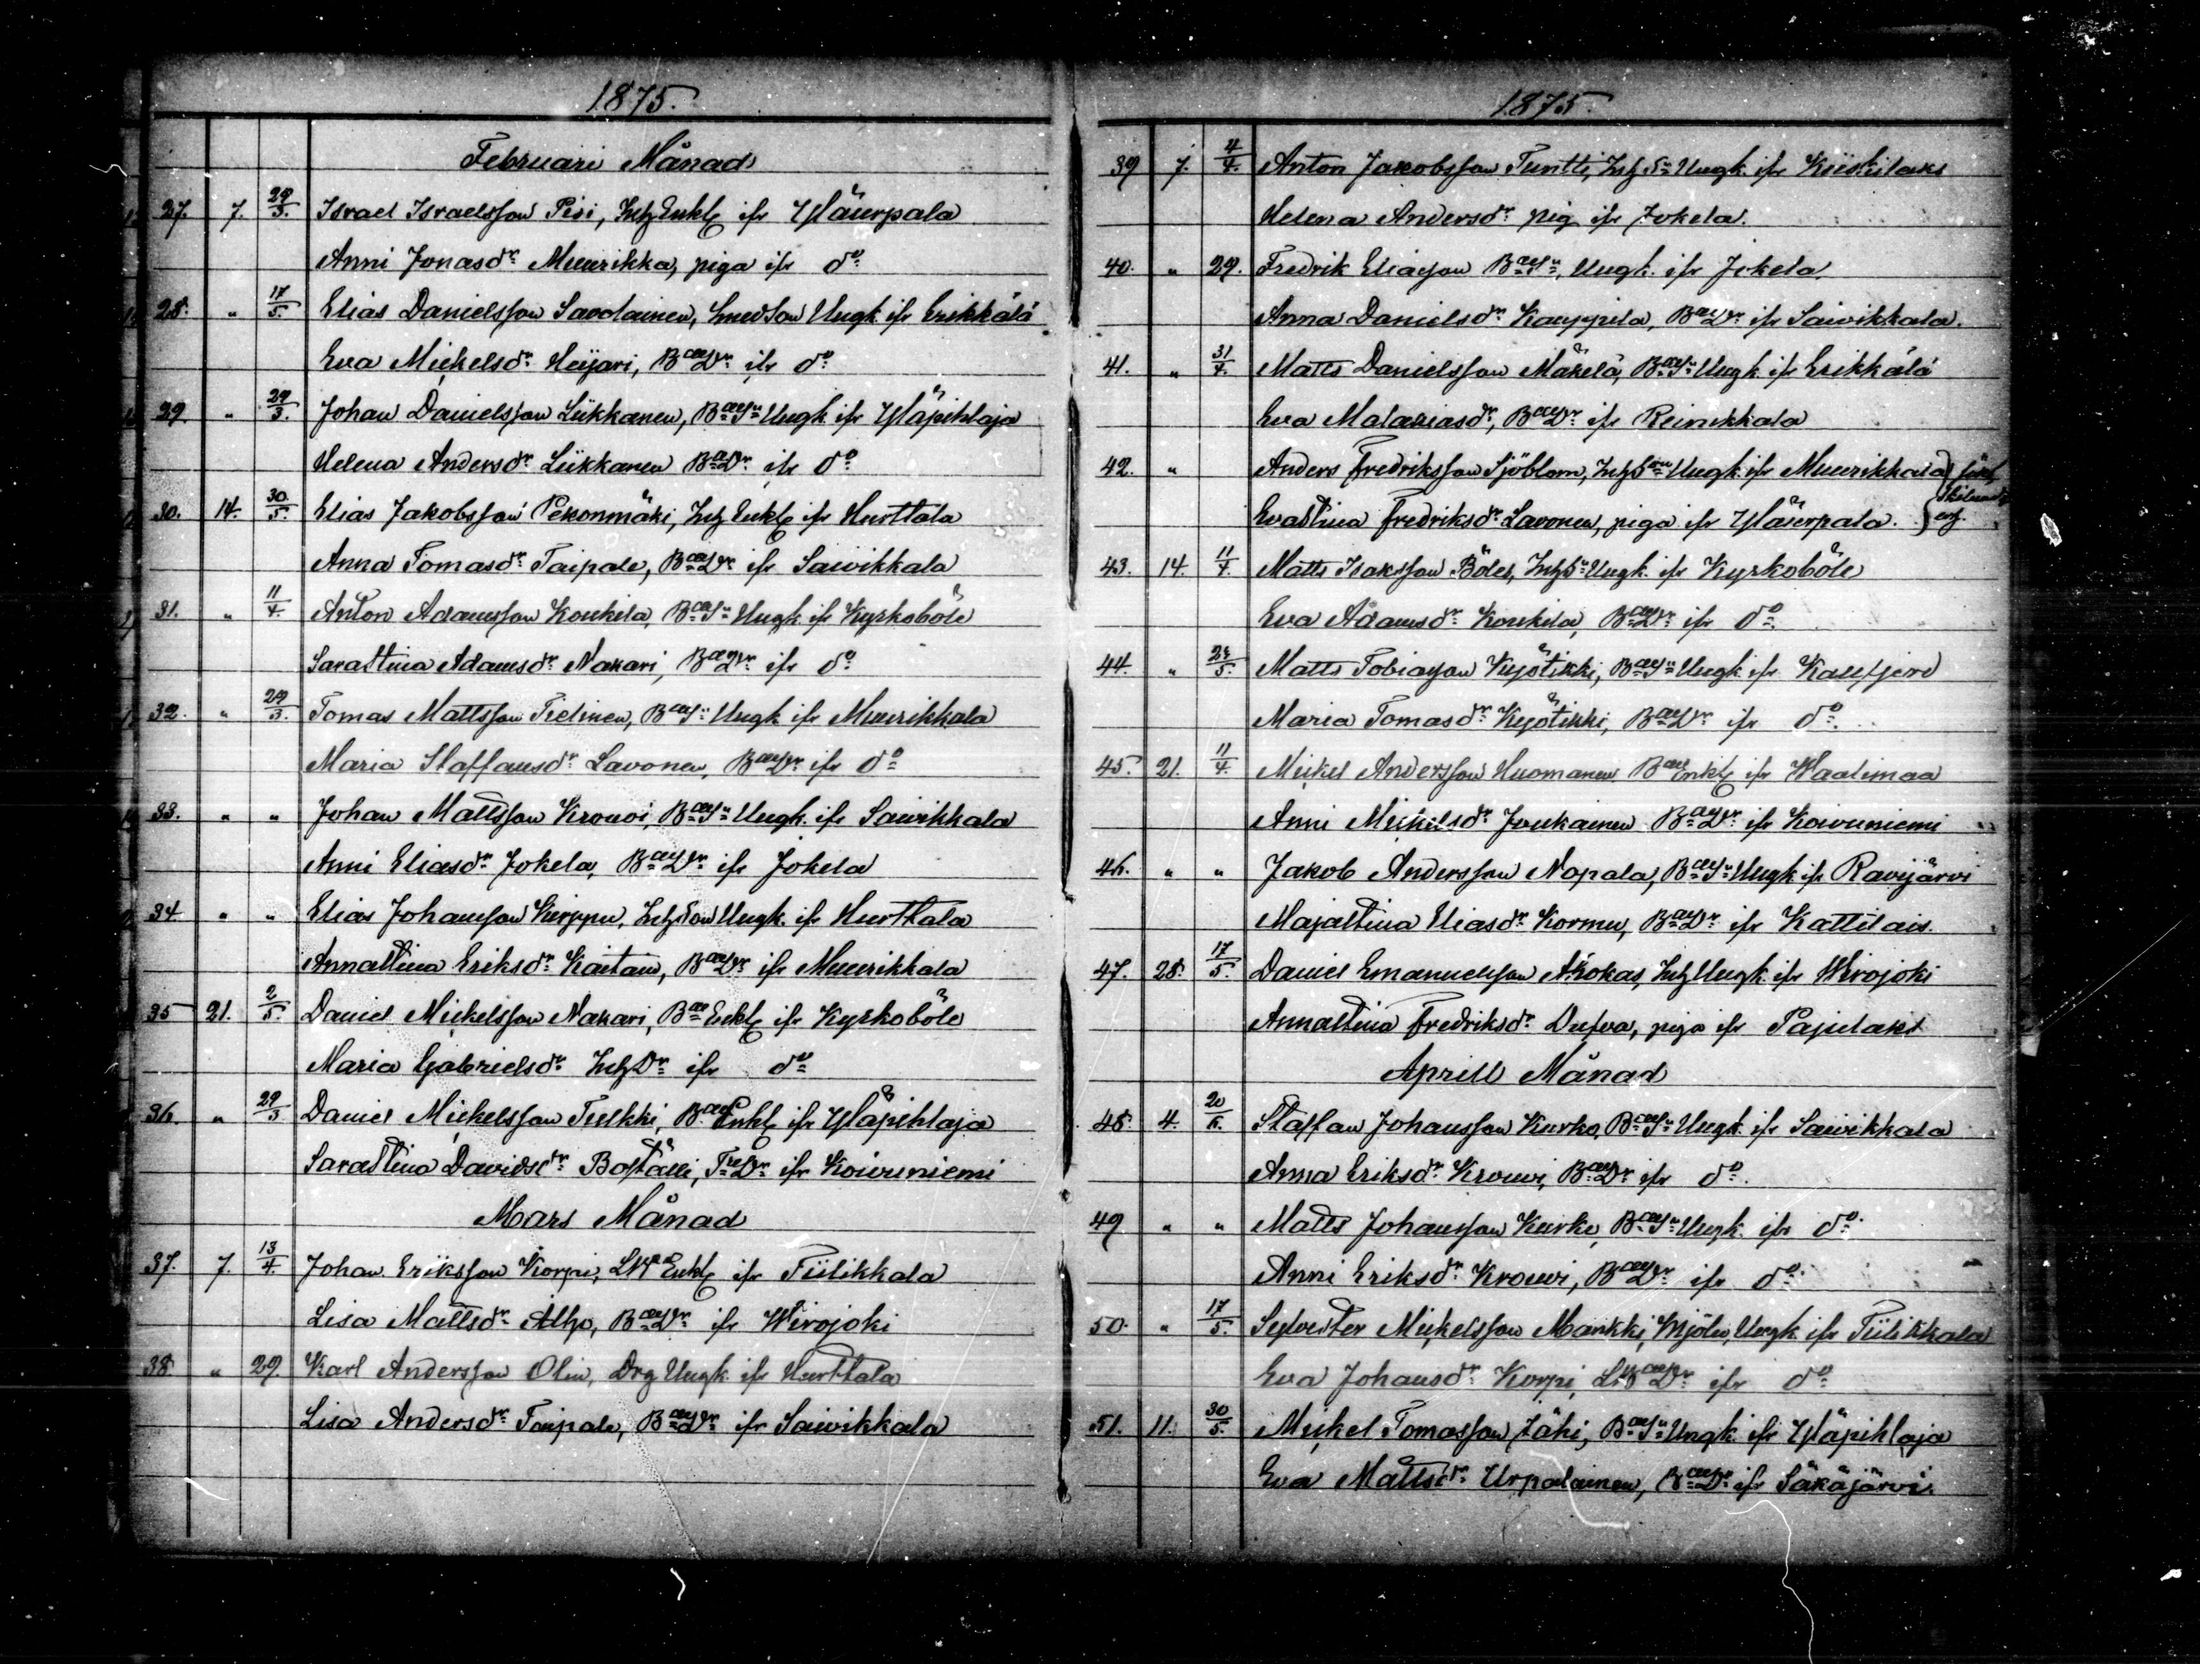 1875.
Februari Månad
27. 7. 29/3. Israel Israelsson Pisi, Inhs Enkl ifr Yläurpala
Anni Jonasdr Muurikka, piga ifr do
28. " 17/5. Elias Danielsson Savolainen, SmedSon Ungk ifr Erikkälä
Eva Mickelsdr Heijari, BaeDr ifr do
29. " 29/3. Johan Danielsson Liikkanen, BaeSn Ungk ifr Yläpihlaja
Helena Andersdr Liikkanen BaDr ifr do
30. 14. 30/5. Elias Jakobsson Pekonmäki, Inhs Enkl ifr Hurttala
Anna Tomasdr Taipale, BaeDr ifr Saivikkala
31. " 11/4. Anton Adamsson Koukila, BaeSn Ungk ifr Kyrkoböle
Sarastina Adamsdr Nakari, BaeDr ifr do
32. " 29/3. Tomas Mattsson Tielinen, BaeSn Ungk ifr Muurikkala
Maria Staffansdr Lavonen, BaeDr ifr do
33. " " Johan Mattsson Krouvi, BaeSn Ungk ifr Saivikkala
Anni Eliasdr Jokela, BaeDr ifr Jokela
34. " " Elias Johansson Kirppu, Inhs Son Ungk. ifr Hurttala
Annastina Eriksdr Kaitain, BaeDr ifr Muurikkala
35 21. 2/5. Daniel Mickelsson Nakari, Bae Enkl ifr Kyrkoböle
Maria Gabrielsdr InhsDr ifr do
36. " 29/3 Daniel Mickelsson Tulkki, Bae Enkl ifr Yläpihlaja
Sarastina Davidsdr Boställi, Dr ifr Koivuniemi
Mars Månad
37. 7. 13/4. Johan Eriksson Korpi, Enkl ifr Tiilikkala
Lisa Mattsdr Alho, BaeDr ifr Wirojoki
38. " 29. Karl Andersson Olin, Drg Ungk ifr Hurttala
Lisa Andersdr Taipale, BaeDr ifr Saivikkala
1875.
39 7. 4/4. Anton Jakobsson Tuntti, Inhs Sn Ungk. ifr Kiiskilaks
Helena Andersdr pig ifr Jokela.
40. " 29. Fredrik Eliasson BaeSn, Ungk. ifr Jokela
Anna Danielsdr Kauppila, BaeDr ifr Saivikkala.
41. " 31/4. Matts Danielsson Mäkelä, BaeSn Ungk ifr Erikkälä
Eva Malakiasdr, BaeDr ifr Reinikkala
42. " Anders Fredriksson Sjöblom, Inhs Son Ungk. ifr Muurikkala
Evastina Fredriksdr Lavonen, piga ifr Yläurpala.
43. 14. 11/4. Matts Isaksson Böles, InhsSn Ungk. ifr Kyrkoböle
Eva Adamsdr Koukila, BaeDr ifr do
44. " 5. Matts Tobiasson Kyöttikki, BaeSn Ungk ifr
Maria Tomasdr Kyöttikki, BaeDr ifr do
45. 21. 11/4. Mickel Andersson Huomanen Bae Enkl ifr Waalimaa
Anni Mickelsdr Joukainen BaeDr ifr Koivuniemi
46. " " Jakob Andersson Nopala, BaeSn Ungk ifr Ravijärvi
Majastina Eliasdr Kormu, BaeDr ifr Kattilais.
47. 28. 17/5. Daniel Emanuelsson Ahokas, Inhs Ungk ifr Wirojoki
Annastina Fredriksdr Dufva, piga ifr Pajulaks
Aprill Månad
48. 4. 20/6. Staffan Johansson Kurko, BaeSn Ungk. ifr Saivikkala
Anna Eriksdr Krouvi, BaeDr ifr do.
49 " " Matts Johansson Kurko, BaeSn Ungk. ifr do.
Anni Eriksdr Krouvi, BaeDr ifr do.
50. " 17/5. Sylvester Mickelsson Mankki, Mjöln, Ungk. ifr Tiilikkala
Eva Johansdr Korpi, Dr ifr do
51. 11. 30/5. Mickel Tomasson Jähi, BaeSn Ungk. ifr Yläpihlaja
Eva Mattsdr Urpalainen, BaeDr ifr Säkäjärvi.